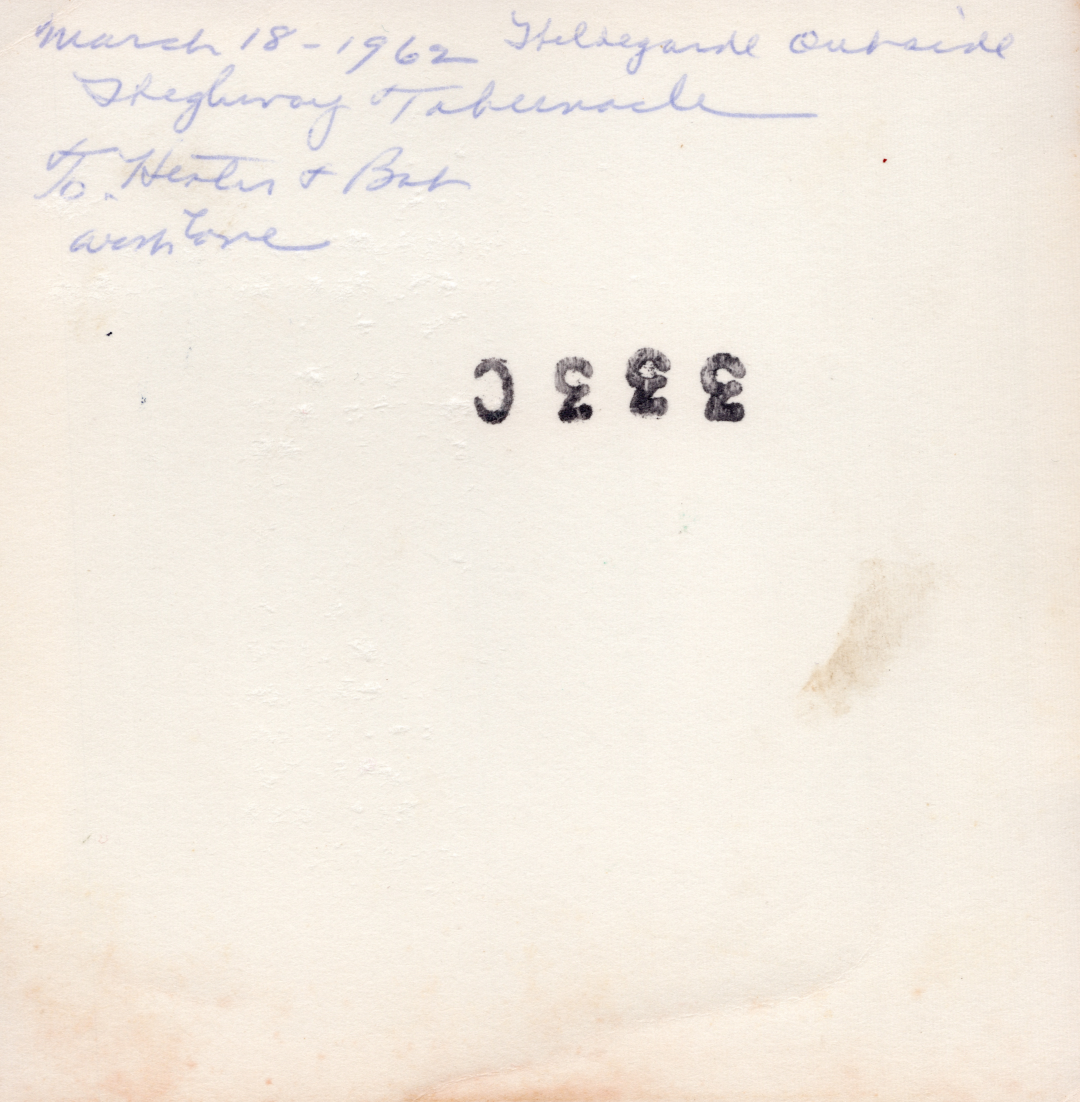 March 18-1962 Hildegarde Outside
Highway Tabernacle
To. Hester + Bob
with Love
333C